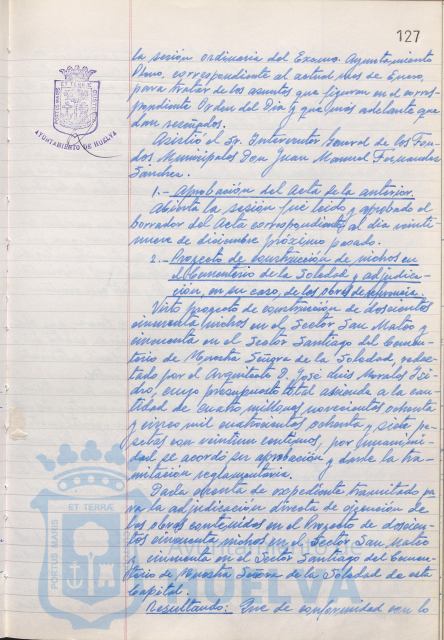 127
la sesión ordinaria del Excmo. Ayuntamiento
Pleno, correspondiente al actual mes de Enero,
para tratar de los asuntos que figuran en el corres-
pondiente Orden del Día y que más adelante que-
dan reseñados.
Asistió el Sr. Interventor General de los Fon-
dos Municipales Don Juan Manuel Fernández
Sánchez.
AYUNTAMIENTO DE HUELVA
1.- Aprobación del Acta de la anterior.
Abierta la sesión fué leído y aprobado el
borrador del Acta correspondiente al día veinti-
nueve de diciembre próximo pasado.
2.- Proyecto de construcción de nichos en
el Cementerio de la Soledad y adjudica-
ción, en su caso, de las obras de referencia.
Visto proyecto de construcción de doscientos
cincuenta nichos en el Sector San Mateo y
cincuenta en el Sector Santiago del Cemen-
terio de Nuestra Señora de la Soledad, redac-
tado por el Arquitecto D. José Luis Morales Isi-
dro, cuyo presupuesto total asciende a la can-
tidad de cuatro millones novecientas ochenta
y cinco mil cuatrocientas ochenta y siete pe-
setas con veintiun centimos, por unanimi-
dad se acordó su aprobación y darle la tra-
mitación reglamentaria.
Dada cuenta de expediente tramitado pa-
ra la adjudicación directa de ejecución de
las obras contenidas en el Proyecto de doscien-
tos cincuenta nichos en el Sector San Mateo
y cincuenta en el Sector Santiago del Cemen-
terio de Nuestra Señora de la Soledad de esta
Capital.
Resultando: Que de conformidad con lo
ET TERRÆ
PORTUS MARIS
Ayuntamiento de
HUELVA